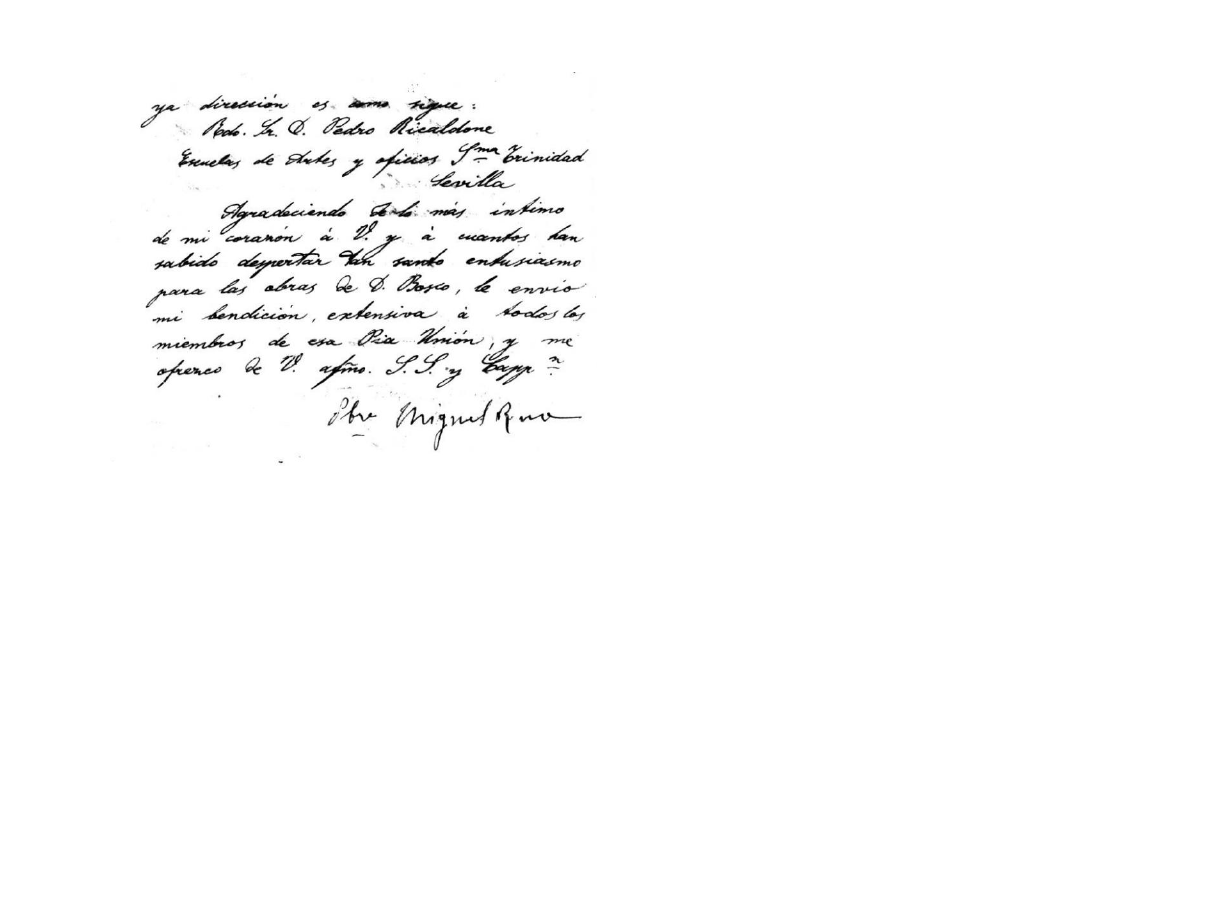 ya dirección es como sigue:
Rdo. Sr. D. Pedro Ricaldone
Escuelas de Artes y oficios Sma Trinidad
Sevilla
Agradeciendo de lo más íntimo
de mi corazón à V. y à cuantos han
sabido despertar tan santo entusiasmo
para las obras de D. Bosco, le envio
mi bendición, extensiva à todos los
miembros de esa Pia Unión, y me
ofrezco de V. afmo. S. S. y Capp n
Pbro Miguel Rua